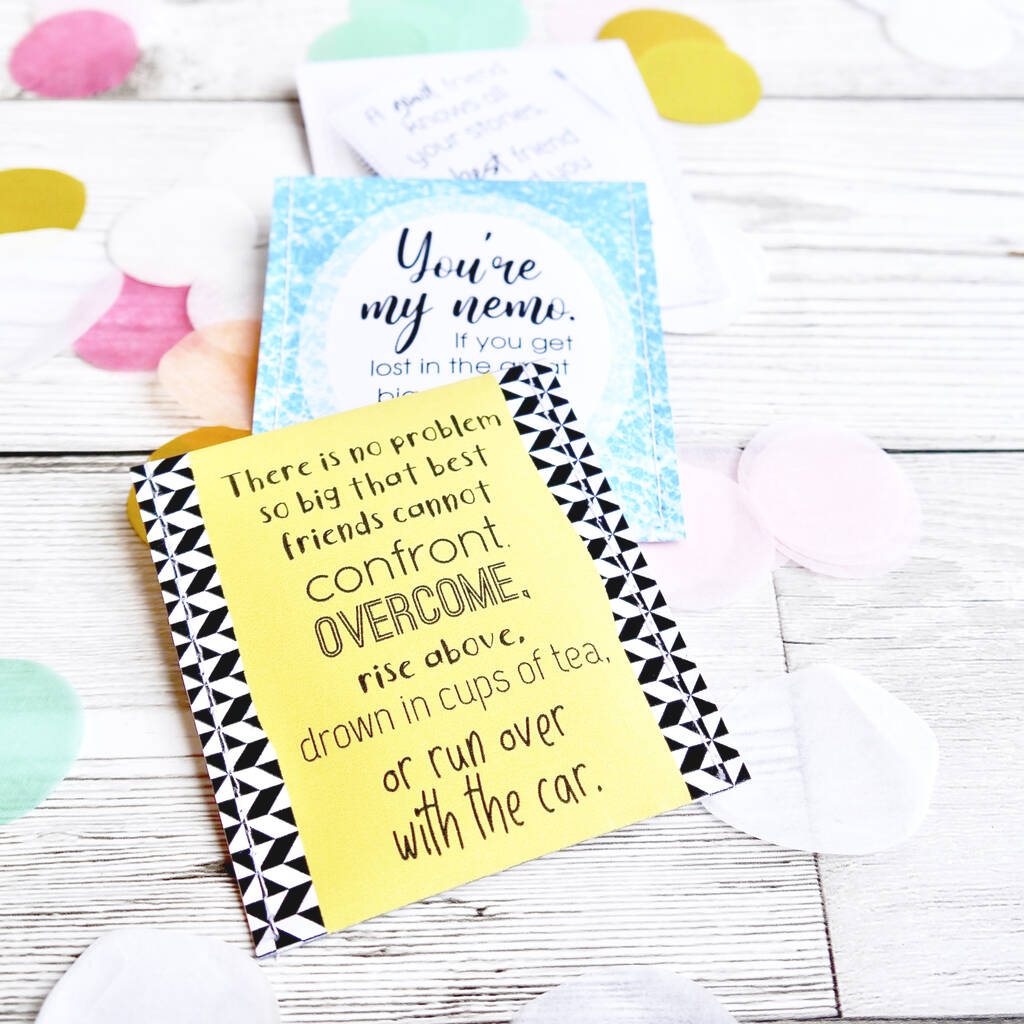 A good friend
knows all
your stories.
best friend
you
You're
my nemo.
If you get
lost in the great
big
There is no problem
so big that best
friends cannot
confront,
OVERCOME,
rise above,
drown in cups of tea,
or run over
with the car.